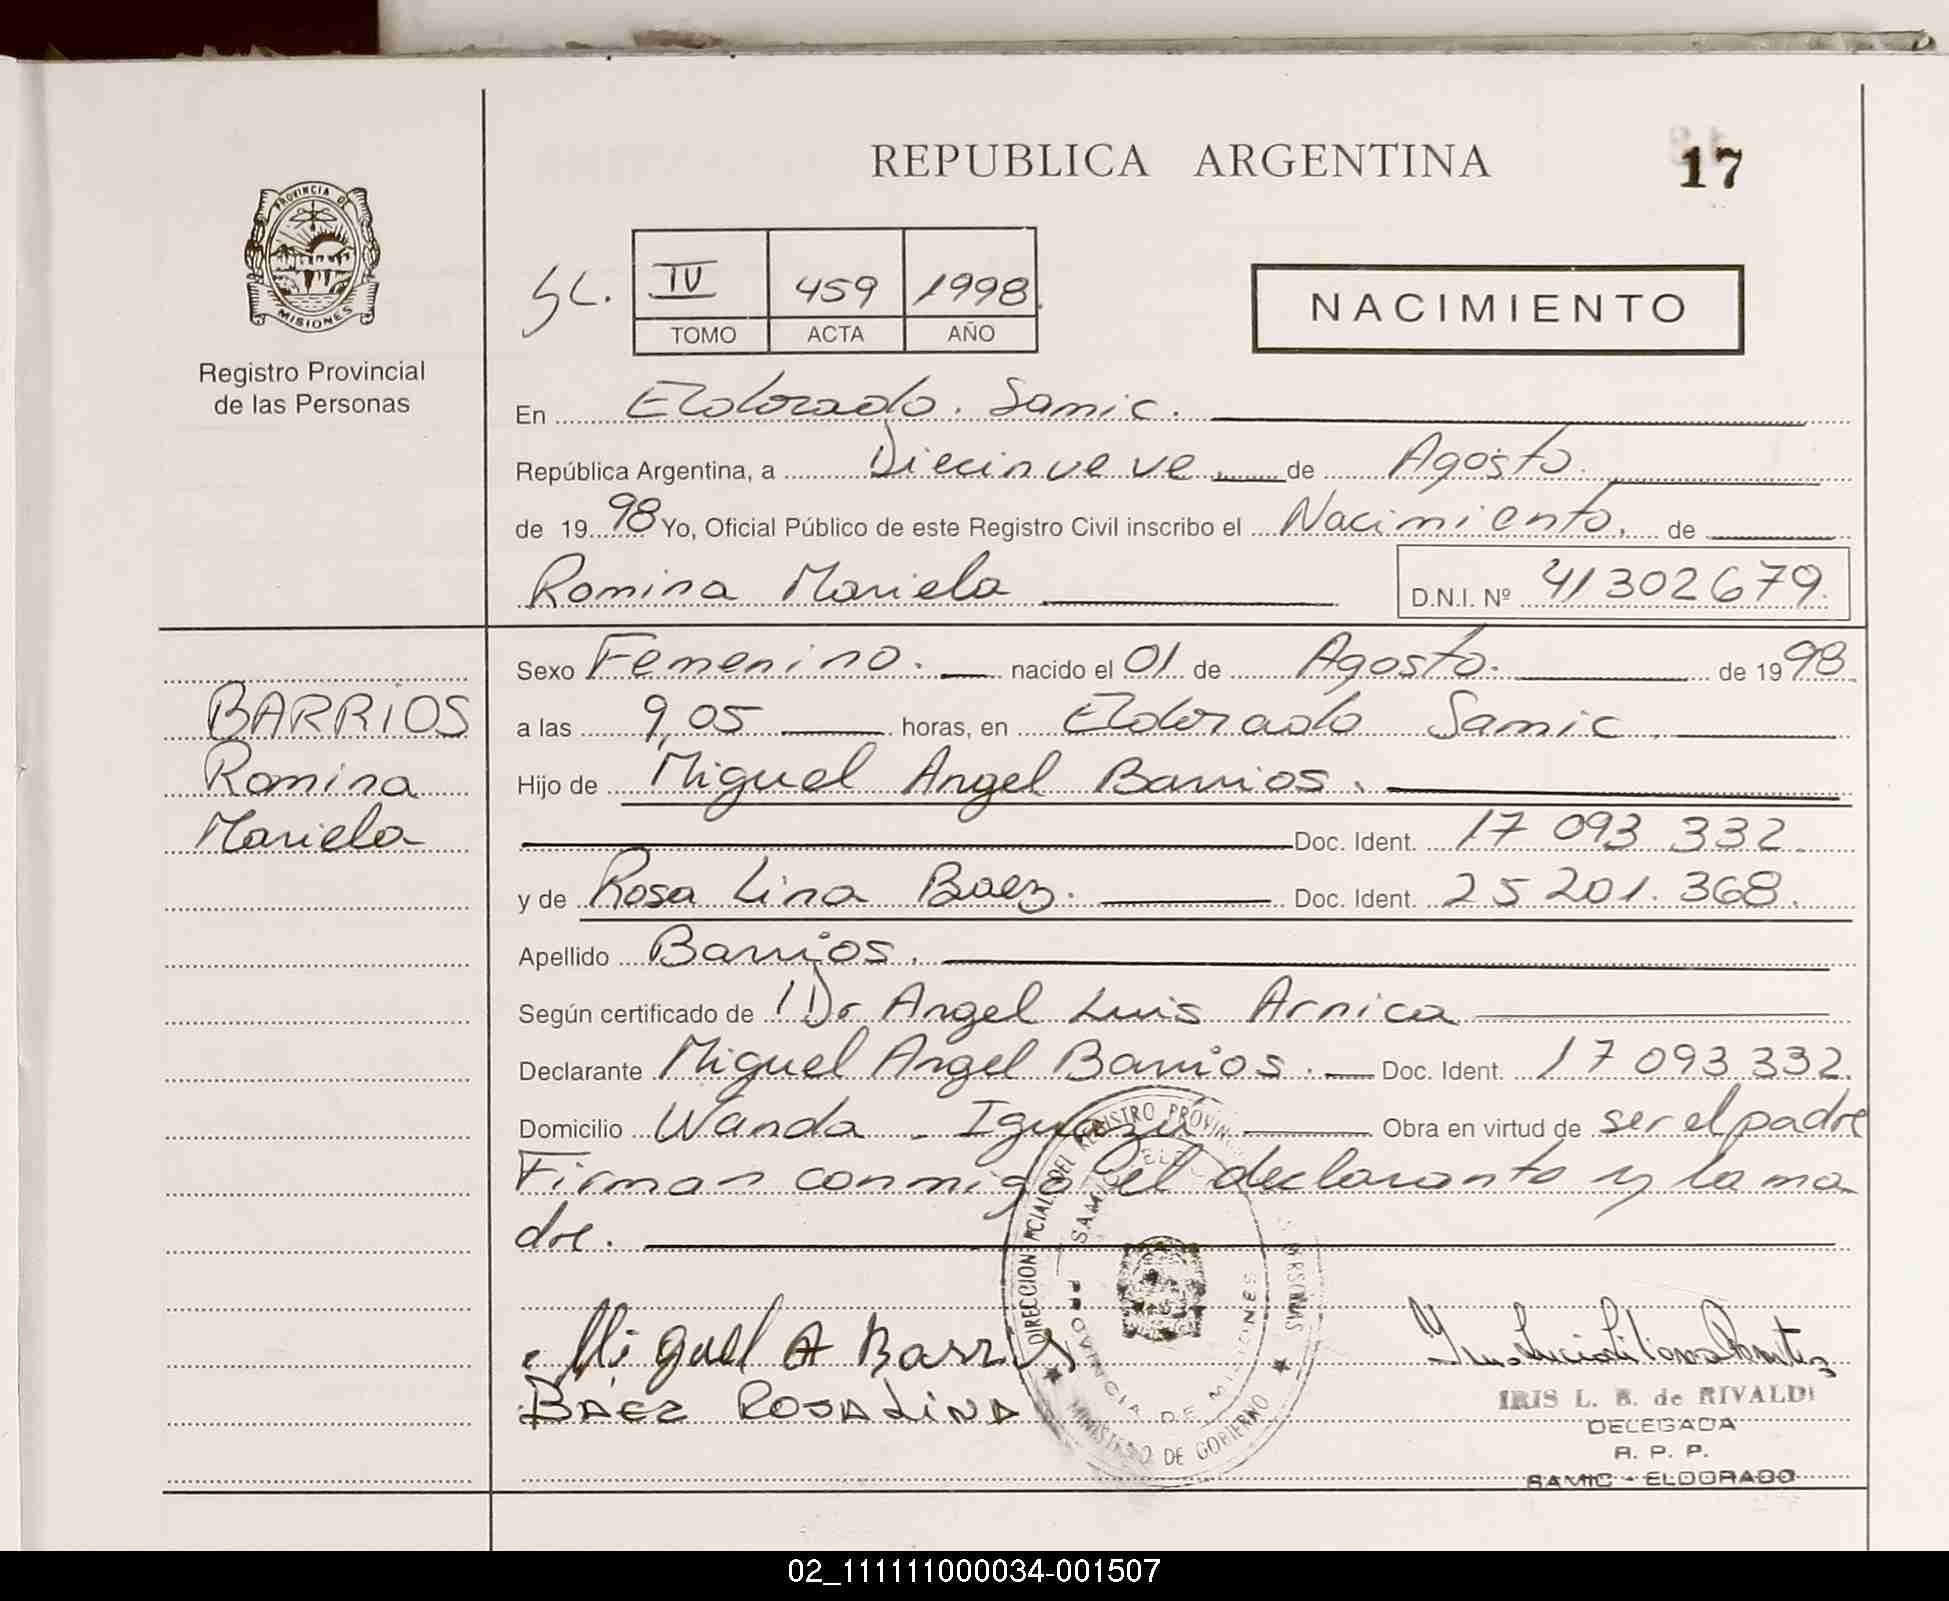 REPUBLICA ARGENTINA
17
PROVINCIA DE
MISIONES
Registro Provincial
de las Personas
SC.
IV 459 1998
TOMO ACTA AÑO
NACIMIENTO
En Eldorado. Samic.
República Argentina, a Diecinueve de Agosto.
de 19 98 Yo, Oficial Público de este Registro Civil inscribo el Nacimiento. de
Romina Mariela D.N.I. Nº 41302679.
Sexo Femenino. nacido el 01 de Agosto. de 19 98
BARRIOS
Romina
Mariela
a las 9,05 horas, en Eldorado Samic.
Hijo de Miguel Angel Barrios.
Doc. Ident. 17 093 332.
y de Rosa Lina Baez. Doc. Ident. 25 201. 368.
Apellido Barrios.
Según certificado de Dr Angel Luis Arnica
Declarante Miguel Angel Barrios. Doc. Ident. 17 093 332.
Domicilio Wanda - Iguazú Obra en virtud de ser el padre
Firman conmigo el declarante y la ma
dre.
DIRECCION PCIAL. DEL REGISTRO PROVIN PERSONAS
SAMIC ELD
PROVINCIA DE MISIONES
MINISTERIO DE GOBIERNO
Miguel A Barrios
BAEZ ROSALINA
IRIS L. B. de RIVALDI
DELEGADA
R. P. P.
SAMIC - ELDORADO
02_111111000034-001507